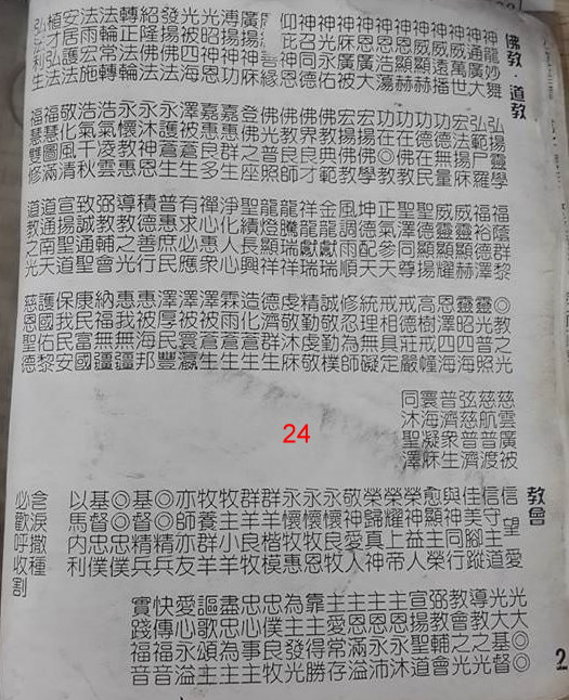 佛教．道教
神龍妙舞
神通廣大
神威萬世
神威遠播
神威顯赫
神恩顯赫
神恩浩蕩
神庥廣被
神永化佑
神召同德
仰芘神恩
善緣
廣揚神庥
溥揚神功
光昭神明
光被四海
發揚佛法
紹隆佛法
轉正法輪
法輪常轉
法雨宏施
安居護法
植才護法
弘法利生
弘揚靈學
弘範尸羅
宏法揚庥
功德無量
功德在民
功在佛教
功在◎教
宏揚佛學
宏揚佛教
佛界典範
佛教良才
佛光良師
佛光普照
登佛之座
嘉惠群生
嘉惠良多
澤被蒼生
永護蒼生
永沐恩惠
永懷教恩
浩氣凌雲
浩氣千秋
敬化風清
福慧圓滿
福慧雙修
福蔭群黎
福裕德澤
威靈顯赫
威靈顯耀
聖德顯揚
聖澤同尊
正氣參天
坤德配天
風調雨順
金龍獻瑞
龍龍獻祥
龍騰瑞祥
龍燈顯瑞
聖績長興
淨化人心
禪心惠眾
有求必應
普惠庶民
積德善行
導教之光
弘教輔會
致誠通聖
宣揚聖道
道通南天
道教之光
◎教之光
靈光普照
靈澤四海
恩澤四海
高樹戒幢
戒德莊嚴
戒相具足
統理無礙
修忍為師
誠敬勤樸
精勤敬誠
虔敬沐庥
德濟群生
造化蒼生
霖雨蒼生
澤被蒼生
澤被寰瀛
澤厚民豐
惠被海邦
惠我無疆
納福無疆
康民富國
保我民安
護國佑黎
慈恩聖德
慈雲廣被
慈航普渡
弦慈普濟
普濟眾生
寰海凝庥
同沐聖澤
24
教會
信望愛
信守主道
佳美腳蹤
與神同行
愈顯主榮
榮神益人
榮耀上帝
榮歸真神
敬神愛人
永懷牧恩
永懷牧惠
群羊楷模
群羊良牧
牧主小羊
牧養群羊
亦師亦友
◎◎精兵
基督精兵
◎◎忠僕
基督忠僕
以馬內利
含淚撒種
必歡呼收割
光大◎◎
光大基督
導之光
教會之光
弘教輔會
宣揚聖道
主恩永沐
主恩滿沛
主恩常溢
靠主得勝
為主發光
忠僕良牧
忠心事主
盡忠為主
謳歌頌主
愛心永溢
快傳福音
實踐福音
2